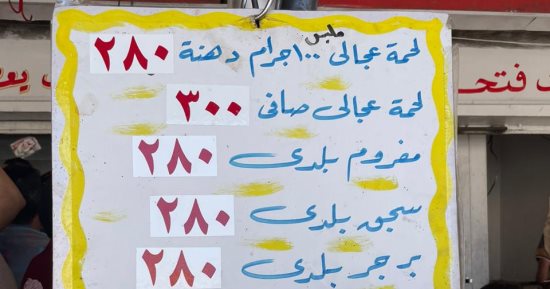 لحمة عجالى ملبس ١٠٠ جرام دهنة ٢٨٠
لحمة عجالى صافى ٣٠٠
مفروم بلدى ٢٨٠
سجق بلدى ٢٨٠
برجر بلدى ٢٨٠
فتحـ